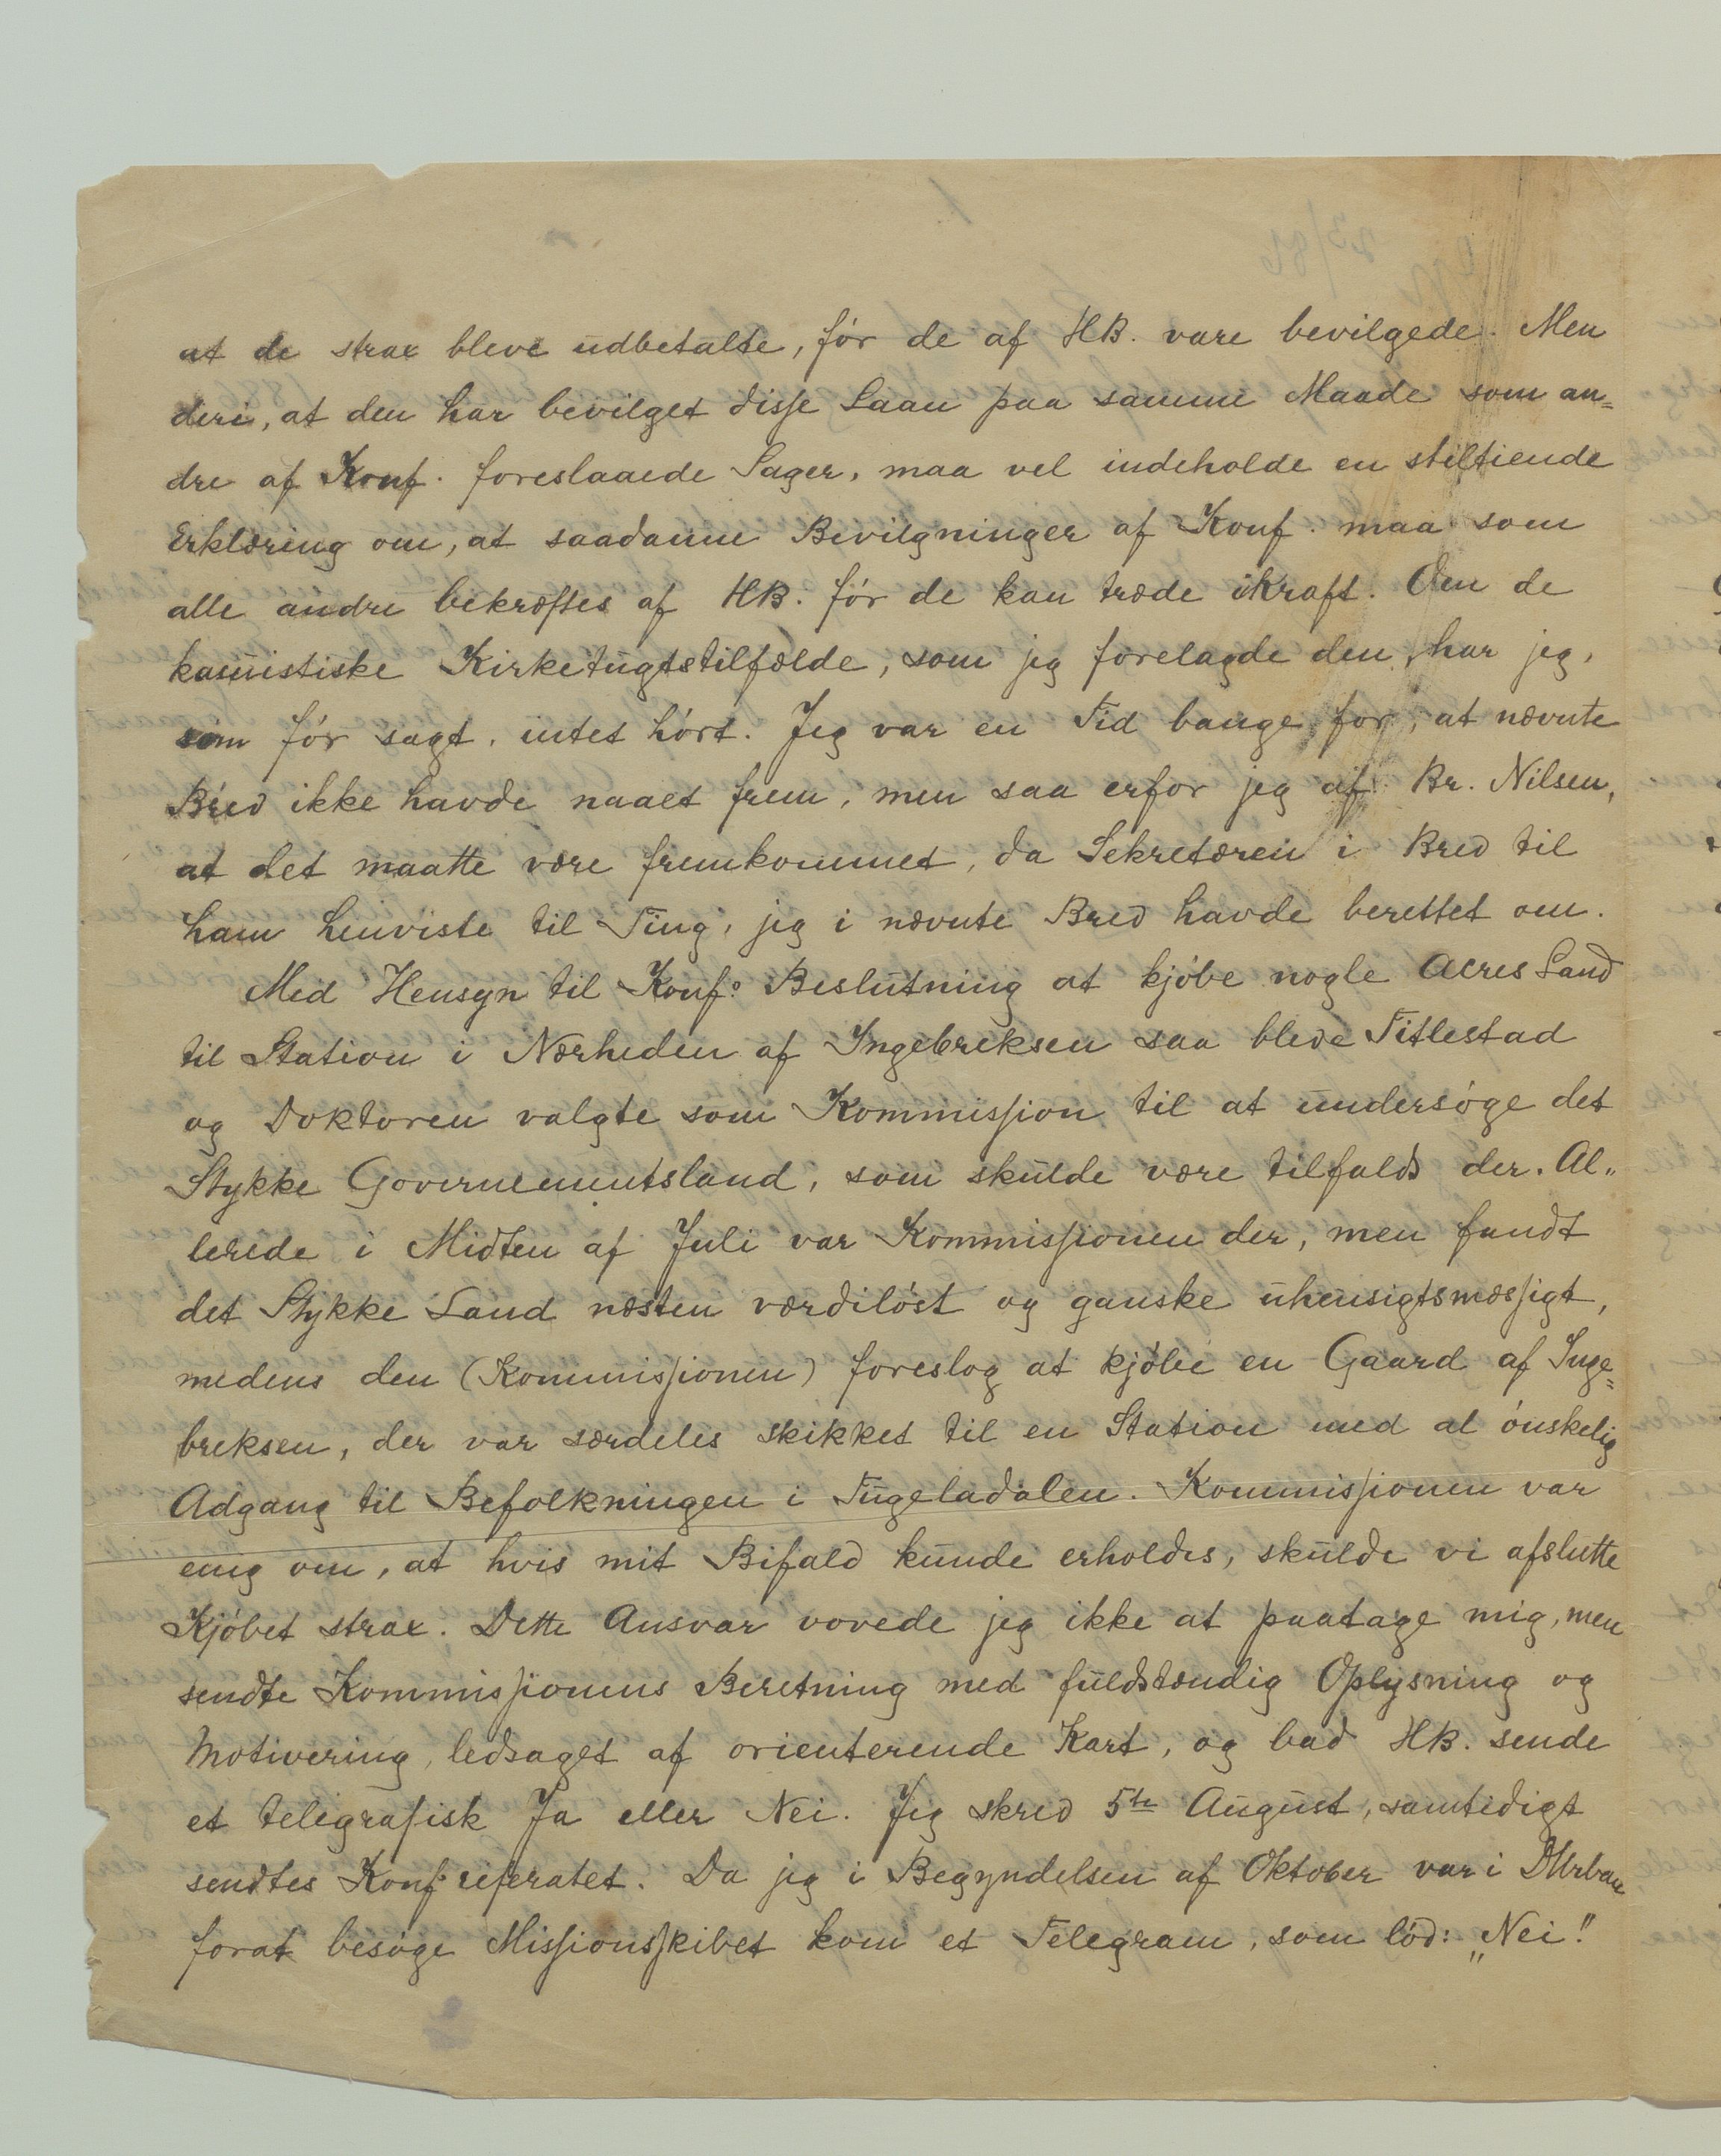 at de strax bleve udbetalte, før de af HB. vare bevilgede. Men
deri, at den har bevilget disse Laan paa samme Maade som an=
dre af Konf. foreslaaede Sager, maa vel indeholde en stiltiende
Erklæring om, at saadanne Bevilgninger af Konf. maa som
alle andre bekræftes af HB. før de kan træde ikraft. Om de
kasuistiske Kirketugtstilfælde, som jeg forelagde den, har jeg,
som før sagt, intet hørt. Jeg var en Tid bange for, at nævnte
Brev ikke havde naaet frem, men saa erfor jeg af Br. Nilsen,
at det maatte være fremkommet, da Sekretæren i Brev til
ham henviste til Ting, jeg i nævnte Brev havde berettet om.
Med Hensyn til Konfs Beslutning at kjøbe nogle Acres Land
til Station i Nærheden af Ingebreksen saa bleve Titlestad
og Doktoren valgte som Kommission til at undersøge det
Stykke Governementsland, som skulde være tilfalds der. Al„
lerede i Midten af Juli var Kommissionen der, men fandt
det Stykke Land næsten værdiløst og ganske uhensigtsmæssigt,
medens den (Kommissionen) foreslog at kjøbe en Gaard af Inge=
breksen, der var særdeles skikket til en Station med al ønskelig
Adgang til Befolkningen i Tugeladalen. Kommissionen var
enig om, at hvis mit Bifald kunde erholdes, skulde vi afslutte
Kjøbet strax. Dette Ansvar vovede jeg ikke at paatage mig, men
sendte Kommissionens Beretning med fuldstændig Oplysning og
Motivering, ledsaget af orienterende Kart, og bad HB. sende
et telegrafisk Ja eller Nei. Jeg skrev 5te August, samtidigt
sendtes Konf. referatet. Da jeg i Begyndelsen af Oktober var i DUrban
forat besøge Missionsskibet kom et Telegram, som lød: „Nei!"